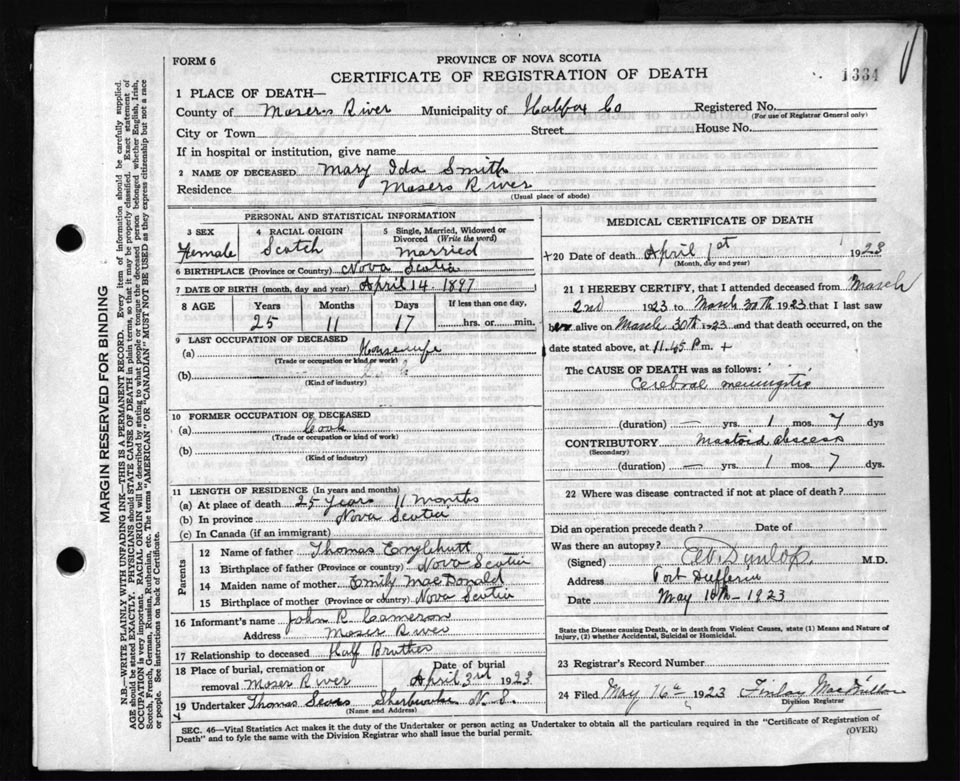 FORM 6
PROVINCE OF NOVA SCOTIA
CERTIFICATE OF REGISTRATION OF DEATH
1334
1 PLACE OF DEATH—
County of Mosers River Municipality of Halifax Co Registered No.
(For use of Registrar General only)
City or Town Street House No.
If in hospital or institution, give name
2 NAME OF DECEASED Mary Ida Smith
Residence Mosers River
(Usual place of abode)
PERSONAL AND STATISTICAL INFORMATION
3 SEX 4 RACIAL ORIGIN 5 Single, Married, Widowed or Divorced (Write the word)
Female Scotch Married
6 BIRTHPLACE (Province or Country) Nova Scotia
7 DATE OF BIRTH (month, day and year) April 14. 1897
8 AGE Years Months Days If less than one day,
25 11 17 hrs. or min.
9 LAST OCCUPATION OF DECEASED
(a) Housewife
(Trade or occupation or kind of work)
(b)
(Kind of industry)
10 FORMER OCCUPATION OF DECEASED
(a) Cook
(Trade or occupation or kind of work)
(b)
(Kind of industry)
11 LENGTH OF RESIDENCE (In years and months)
(a) At place of death 25 Years 11 months
(b) In province Nova Scotia
(c) In Canada (if an immigrant)
Parents
12 Name of father Thomas Englehutt
13 Birthplace of father (Province or country) Nova Scotia
14 Maiden name of mother Emily MacDonald
15 Birthplace of mother (Province or country) Nova Scotia
16 Informant's name John R Cameron
Address Moser River
17 Relationship to deceased Half Brother
18 Place of burial, cremation or removal Moser River Date of burial April 3rd 1923
19 Undertaker Thomas Sears Sherbrooke N. S.
(Name and Address)
MEDICAL CERTIFICATE OF DEATH
+20 Date of death April 1st 1923
(Month, day and year)
21 I HEREBY CERTIFY, that I attended deceased from March
2nd 1923 to March 30th 1923 that I last saw
her alive on March 30th 1923 and that death occurred, on the
date stated above, at 11.45 P.m. +
The CAUSE OF DEATH was as follows:
Cerebral meningitis
(duration) — yrs. 1 mos. 7 dys
CONTRIBUTORY Mastoid abscess
(Secondary)
(duration) — yrs. 1 mos. 7 dys.
22 Where was disease contracted if not at place of death?
Did an operation precede death? Date of
Was there an autopsy?
(Signed) Dunlop. M.D.
Address Port Dufferin
Date May 10th 1923
State the Disease causing Death, or in death from Violent Causes, state (1) Means and Nature of Injury, (2) whether Accidental, Suicidal or Homicidal.
23 Registrar's Record Number
24 Filed May 16th 1923 Finlay
Division Registrar
SEC. 46—Vital Statistics Act makes it the duty of the Undertaker or person acting as Undertaker to obtain all the particulars required in the "Certificate of Registration of
Death" and to fyle the same with the Division Registrar who shall issue the burial permit.
(OVER)
MARGIN RESERVED FOR BINDING
N.B.—WRITE PLAINLY WITH UNFADING INK—THIS IS A PERMANENT RECORD. Every item of information should be carefully supplied.
AGE should be stated EXACTLY. PHYSICIANS should STATE CAUSE OF DEATH in plain terms, so that it may be properly classified. Exact statement of
OCCUPATION is very important. RACIAL ORIGIN will be described by stating to what people or tongue the deceased person belonged whether English, Irish,
Scotch, French, German, Russian, Ruthenian, etc. The terms "AMERICAN" OR "CANADIAN" MUST NOT BE USED as they express citizenship but not a race
or people. See instructions on back of Certificate.